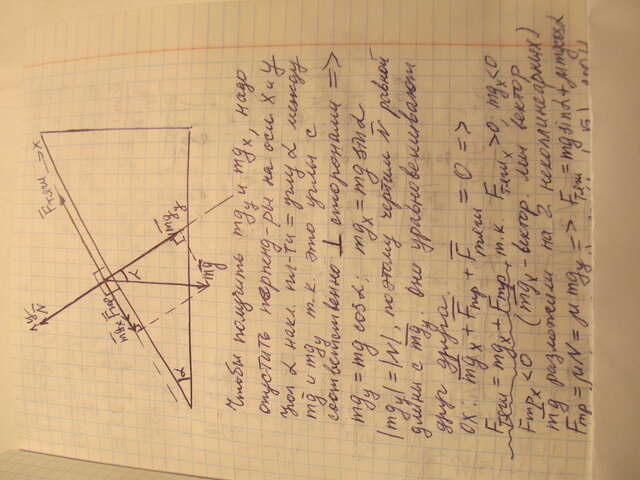 y
N
Fтяги
x
mgx
Fтр
α
mgy
α
mg
Чтобы получить mgy и mgx, надо
опустить перпенд-ры на оси X и Y
Угол α накл. пл-ти = углу α между
mg и mgy т.к. это углы с
соответственно ⊥ сторонами =>
mgy = mg cos α; mgx = mg sin α
|mgy| = |N|, поэтому чертим N равной
длины с mgy. Они уравновешивают
друг друга.
OX: mgx + Fтр + Fтяги = 0 =>
Fтяги = mgx + Fтр, т.к. Fтяги x > 0, mgx < 0
Fтр x < 0 (mgx - вектор, мы вектор
mg разложили на 2 неколлинеарных)
Fтр = μN = μ mgy => Fтяги = mg sin α + μ mg cos α